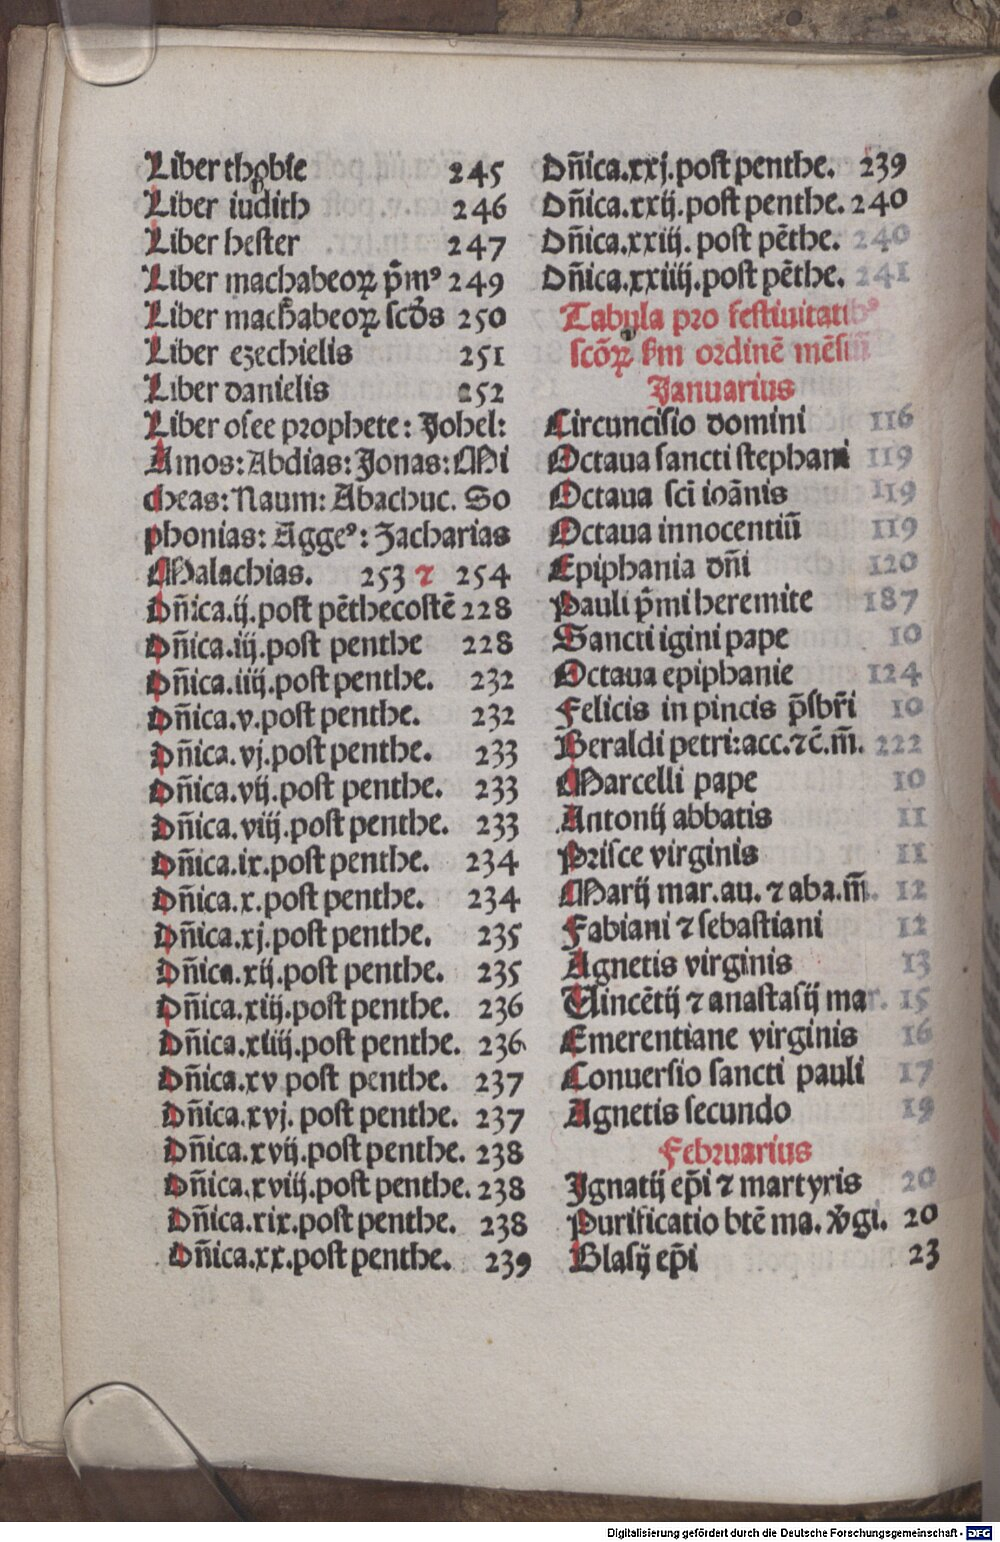 Liber thobie 245
Liber iudith 246
Liber hester 247
Liber machabeoꝝ p̄mꝰ 249
Liber machabeoꝝ scd̄s 250
Liber ezechielis 251
Liber danielis 252
Liber osee prophete: Johel:
Amos: Abdias: Jonas: Mi
cheas: Naum: Abachuc. So
phonias: Aggeꝰ: Zacharias
Malachias. 253 ⁊ 254
Dñica.ij.post pēthecostē 228
Dñica.iij.post penthe 228
Dñica.iiij.post penthe. 232
Dñica.v.post penthe. 232
Dñica.vj.post penthe. 233
Dñica.vij.post penthe. 233
Dñica.viij.post penthe. 233
Dñica.ix.post penthe. 234
Dñica.x.post penthe. 234
Dñica.xj.post penthe. 235
Dñica.xij.post penthe. 235
Dñica.xiij.post penthe. 236
Dñica.xiiij.post penthe. 236
Dñica.xv post penthe. 237
Dñica.xvj. post penthe. 237
Dñica.xvij.post penthe. 238
Dñica.xviij.post penthe. 238
Dñica.xix.post penthe. 238
Dñica.xx.post penthe. 239
Dñica.xxj.post penthe. 239
Dñica.xxij.post penthe. 240
Dñica.xxiij. post pēthe. 240
Dñica.xxiiij.post pēthe. 241
Tabula pro festiuitatibꝰ
scōꝝ ẜm ordinē mēsiū
Januarius
Circuncisio domini 116
Octaua sancti stephani 119
Octaua scī ioānis 119
Octaua innocentiū 119
Epiphania dn̄i 120
Pauli p̄mi heremite 187
Sancti igini pape 10
Octaua epiphanie 124
Felicis in pincis p̄sbr̄i 10
Beraldi petri:acc.⁊c̄.m̄. 222
Marcelli pape 10
Antonij abbatis 11
Prisce virginis 11
Marij mar.au. ⁊ aba.m̄. 12
Fabiani ⁊ sebastiani 12
Agnetis virginis 13
Uincētij ⁊ anastasij mar. 15
Emerentiane virginis 16
Conuersio sancti pauli 17
Agnetis secundo 19
Februarius
Ignatij ep̄i ⁊ martyris 20
Purificatio btē ma. v̄gi. 20
Blasij ep̄i 23
Digitalisierung gefördert durch die Deutsche Forschungsgemeinschaft - DFG